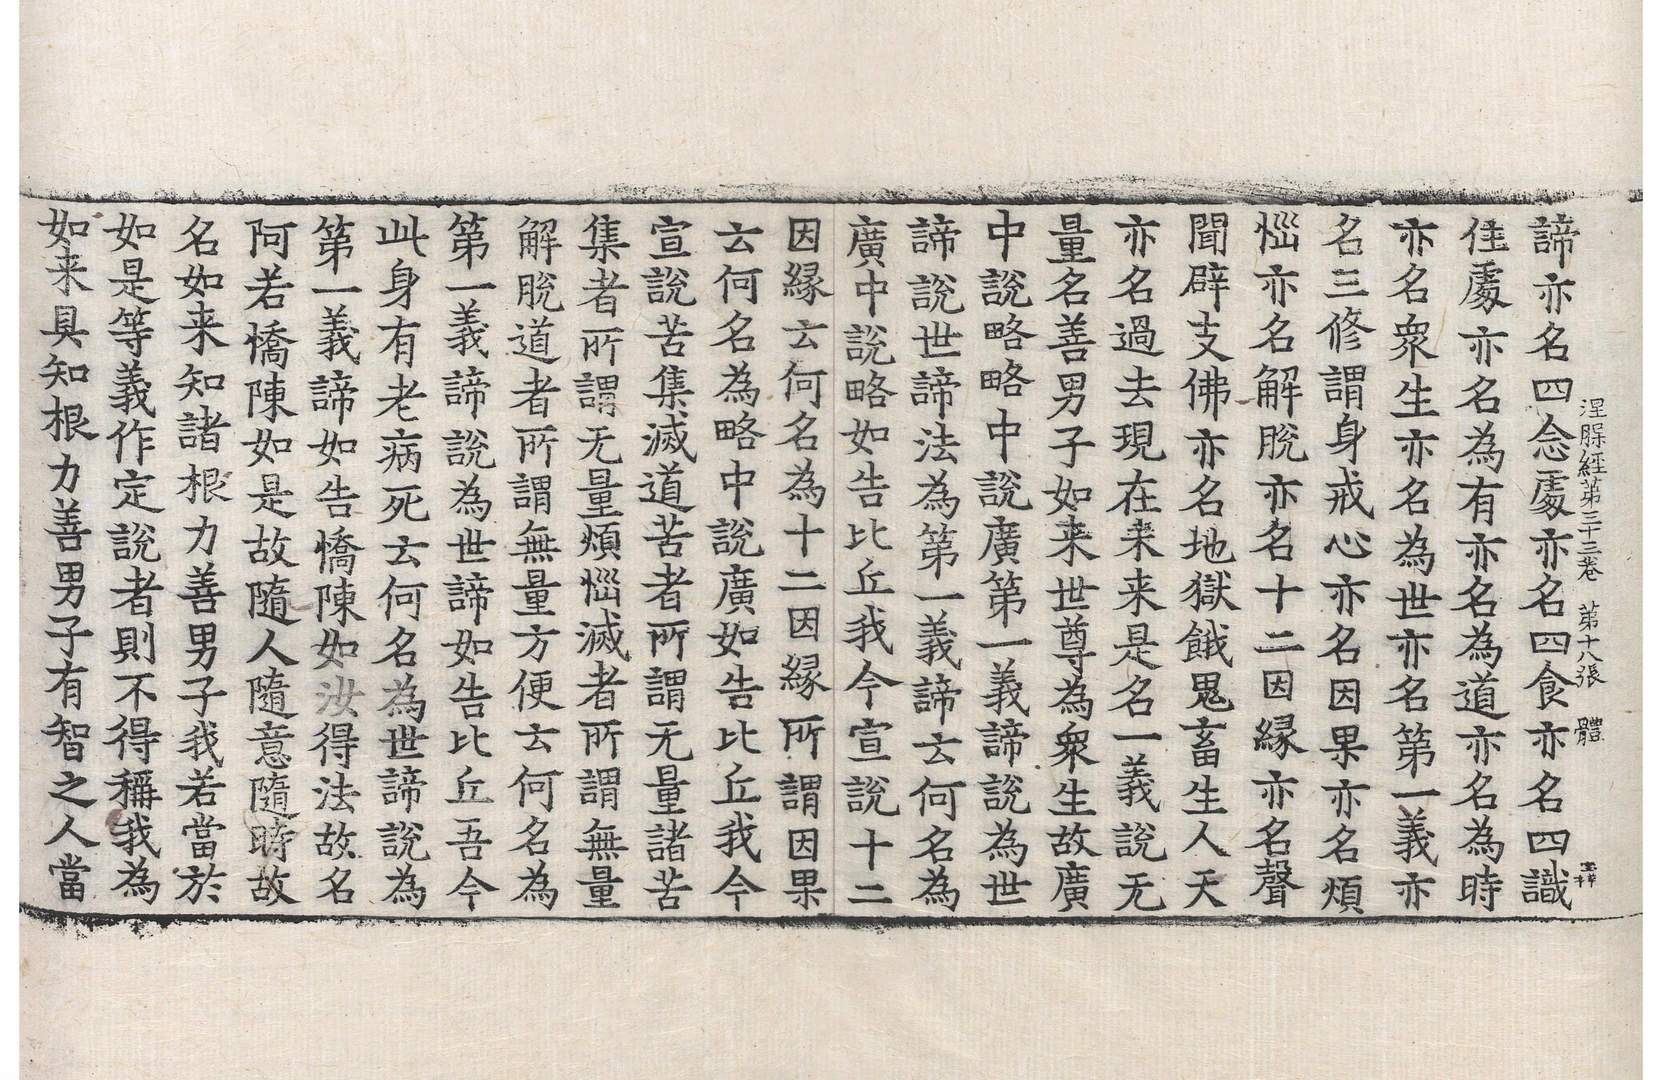 涅槃經第三十三卷　第十八張　體
諦亦名四念處亦名四食亦名四識
住處亦名為有亦名為道亦名為時
亦名衆生亦名為世亦名第一義亦
名三修謂身戒心亦名因果亦名煩
惱亦名解脫亦名十二因緣亦名聲
聞辟支佛亦名地獄餓鬼畜生人天
亦名過去現在未来是名一義說无
量名善男子如来世尊為衆生故廣
中說略略中說廣第一義諦說為世
諦說世諦法為第一義諦云何名為
廣中說略如告比丘我今宣說十二
因緣云何名為十二因緣所謂因果
云何名為略中說廣如告比丘我今
宣說苦集滅道苦者所謂无量諸苦
集者所謂无量煩惱滅者所謂無量
解脫道者所謂無量方便云何名為
第一義諦說為世諦如告比丘吾今
此身有老病死云何名為世諦說為
第一義諦如告憍陳如汝得法故名
阿若憍陳如是故隨人隨意隨時故
名如来知諸根力善男子我若當於
如是等義作定說者則不得稱我為
如来具知根力善男子有智之人當